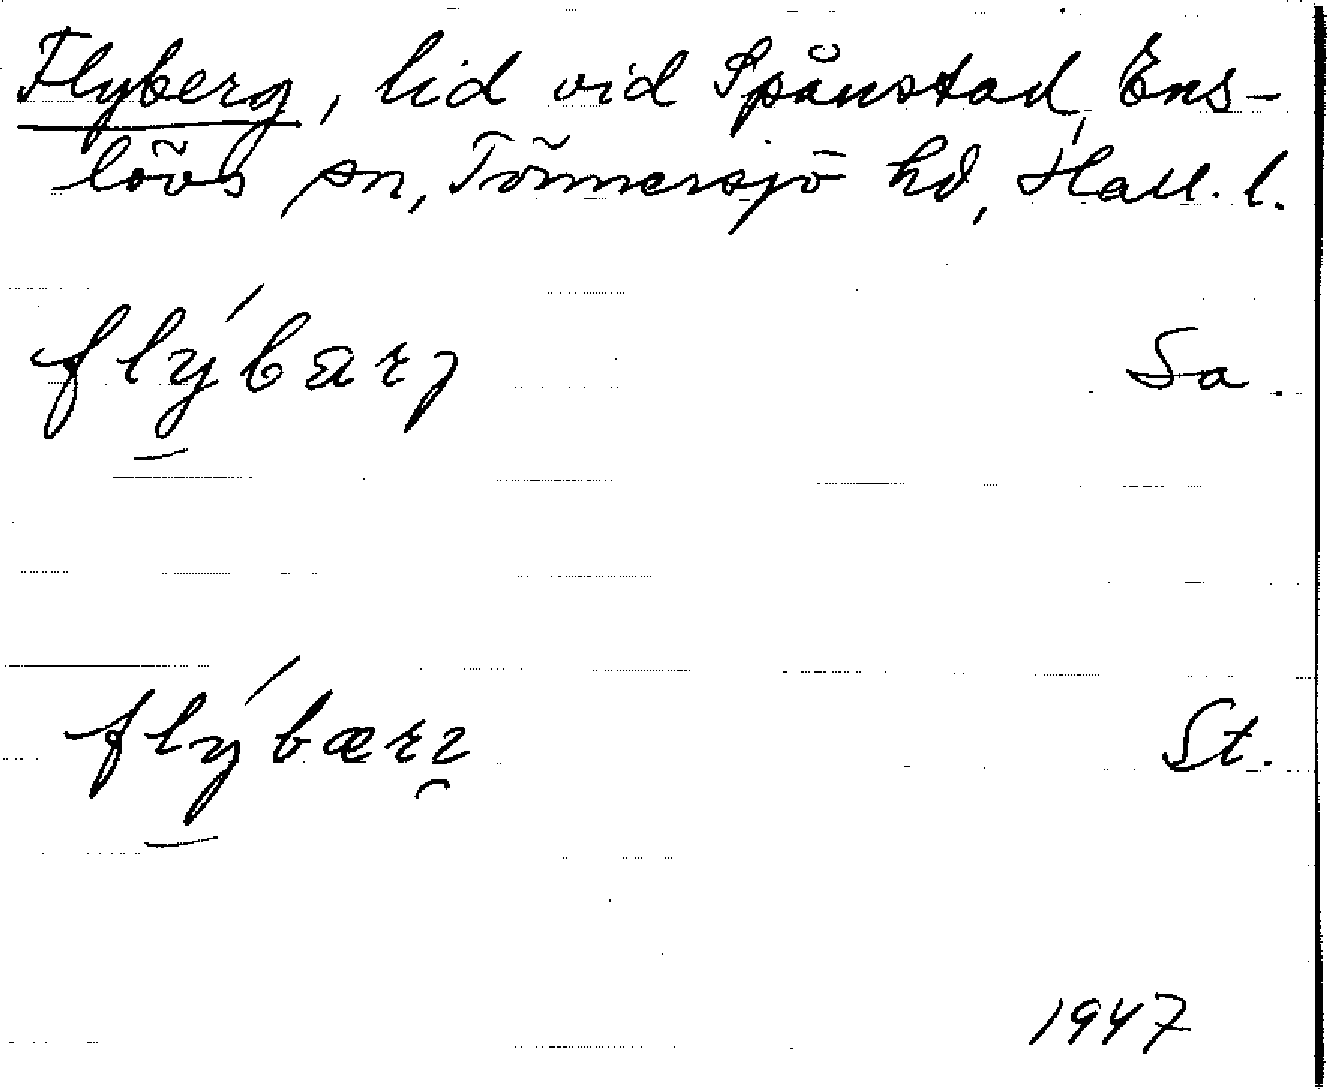 Flyberg, lid vid Spånstad, Ens-
lövs sn, Tönnersjö hd, Hall. l.
flýbærȷ Sa.
flýbærı̯ St.
1947